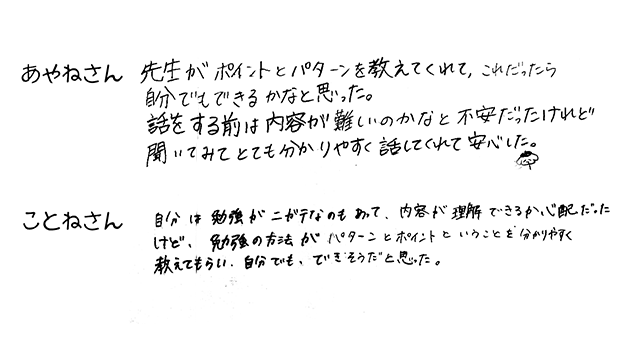 あやねさん 先生がポイントとパターンを教えてくれて、これだったら
自分でもできるかなと思った。
話をする前は内容が難しいのかなと不安だったけれど
聞いてみてとても分かりやすく話してくれて安心した。
ことねさん 自分は勉強がニガテなのもあって、内容が理解できるか心配だった
けど、勉強の方法がパターンとポイントということを分かりやすく
教えてもらい、自分でも、できそうだと思った。